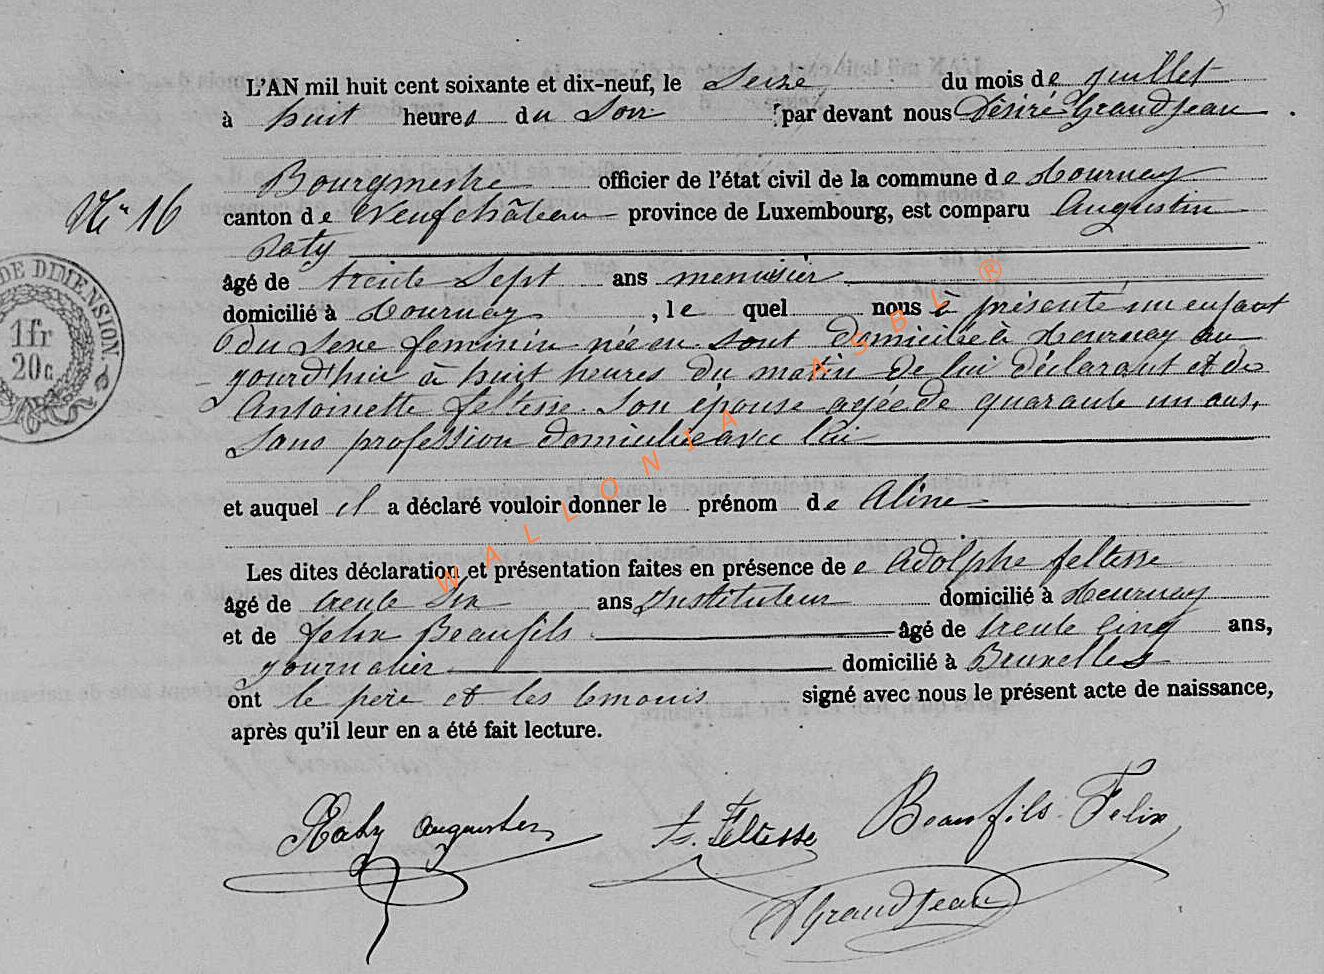 L'AN mil huit cent soixante et dix-neuf, le Seize du mois de juillet
à huit heures du Soir par devant nous Désiré Grandjean
Bourgmestre officier de l'état civil de la commune de Tournay
N° 16
canton de Neufchâteau province de Luxembourg, est comparu Augustin
Raty
âgé de trente Sept ans menuisier
domicilié à Tournay, le quel nous à présenté un enfant
du Sexe feminin née en domiciliée à Tournay au
jourd'hui à huit heures du matin de lui déclarant et de
Antoinette feltesse Son épouse agée de quarante un ans,
Sans profession domiciliée avec lui
et auquel il a déclaré vouloir donner le prénom de Aline
Les dites déclaration et présentation faites en présence de Adolphe feltesse
âgé de trente Six ans Instituteur domicilié à Tournay
et de felix Beaufils âgé de trente cinq ans,
journalier domicilié à Bruxelles
ont le père et les temoins signé avec nous le présent acte de naissance,
après qu'il leur en a été fait lecture.
Raty Augustin Feltesse Beaufils Felix
Grandjean
DE DIMENSION.
1fr
20c
WALLONIA ASBL ®